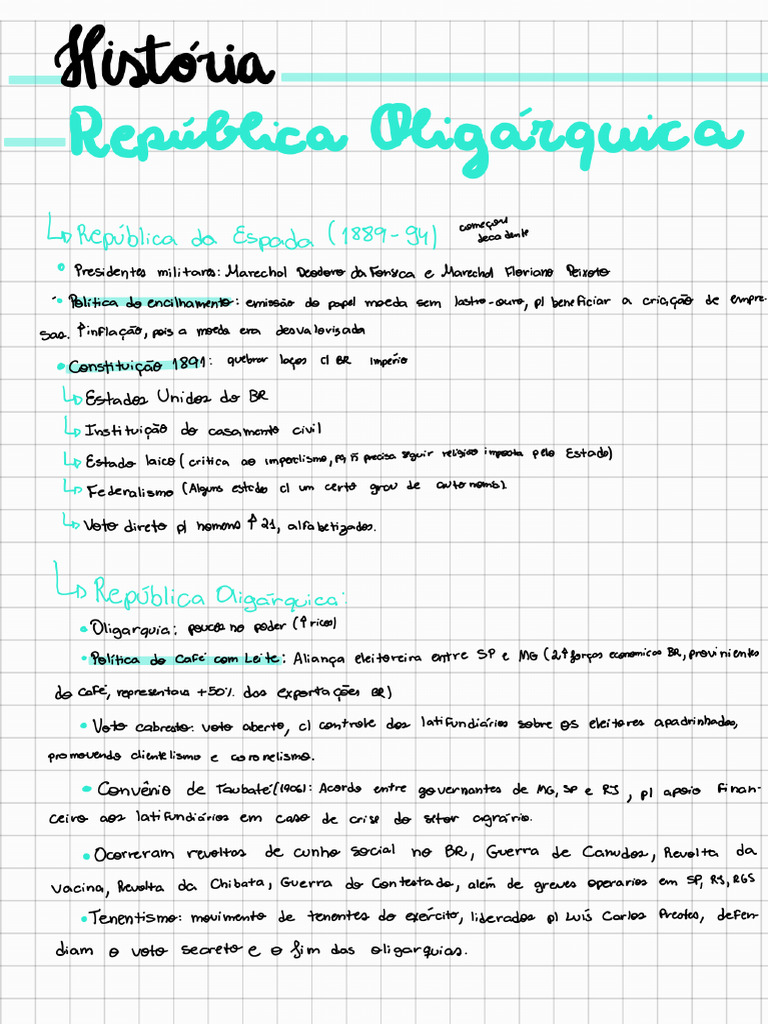 História
República Oligárquica
República da Espada (1889-94) começou
decadente
Presidentes militares: Marechal Deodoro da Fonseca e Marechal Floriano Peixoto
Política do encilhamento: emissão do papel moeda sem lastro-ouro, p/ beneficiar a criação de empre-
sas. ↑inflação, pois a moeda era desvalorizada
Constituição 1891: quebrar laços c/ BR império
Estados Unidos do BR
Instituição do casamento civil
Estado laico (critica ao imperlismo, pq ñ precisa seguir religião imposta pelo Estado)
Federalismo (Alguns estado c/ um certo grau de autonomia).
Voto direto p/ homens ↑21, alfabetizados.
República Oligárquica:
Oligarquia: poucos no poder (↑ricos)
Política do Café com Leite: Aliança eleitoreira entre SP e MG (2↑forças economicas BR, provinientes
do café, representava +50% das exportações BR)
Voto cabresto: voto aberto, c/ controle dos latifundiários sobre os eleitores apadrinhados,
promovendo clientelismo e coronelismo.
Convênio de Taubaté(1906): Acordo entre governantes de MG, SP e RJ, p/ apoio finan-
ceiro aos latifundiários em caso de crise do setor agrário.
Ocorreram revoltas de cunho social no BR, Guerra de Canudos, Revolta da
vacina, Revolta da Chibata, Guerra do Contestado, além de greves operarias em SP, RJ, RGS
Tenentismo: movimento de tenentes do exército, liderados p/ Luís Carlos Prestes, defen-
diam o voto secreto e o fim das oligarquias.